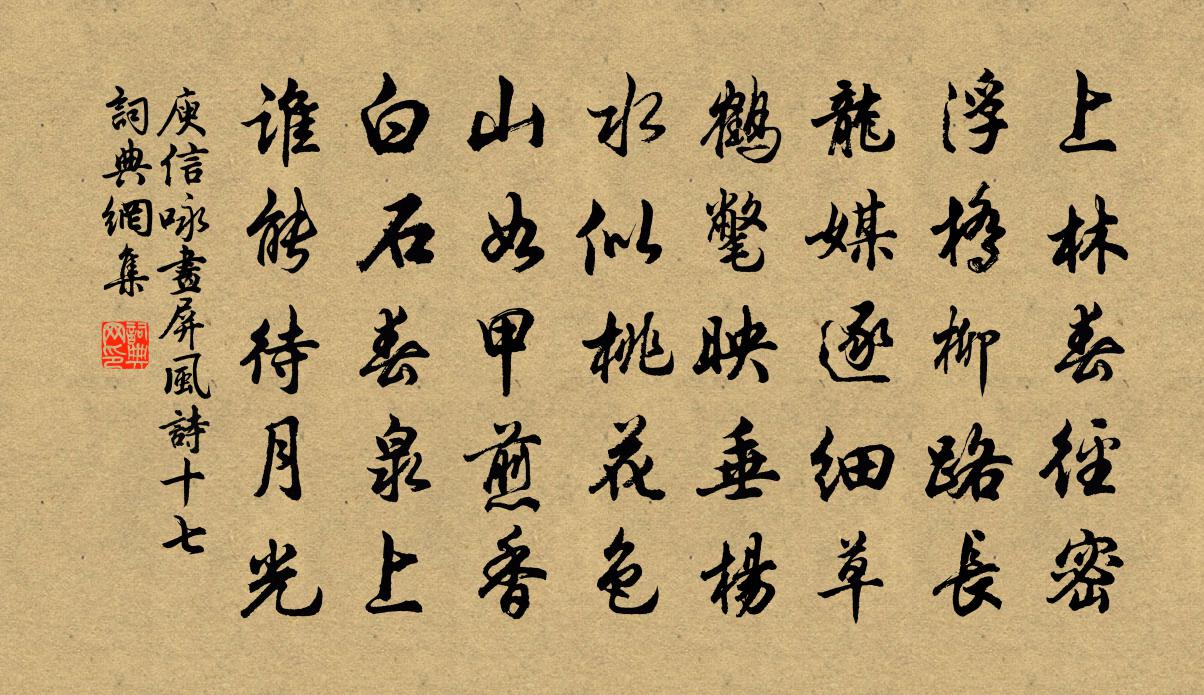 上林春徑密
浮橋柳路長
龍媒逐細草
鶴氅映垂楊
水似桃花色
山如甲煎香
白石春泉上
誰能待月光
庾信詠畫屏風詩十七
詞典網集
詞典网印